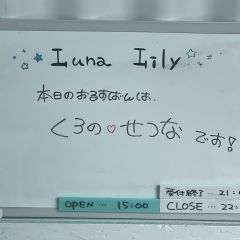 Luna Lily
本日のおるすばんは、
くろの♡せつな です!
受付終了… 21:
OPEN … 15:00
CLOSE… 22: